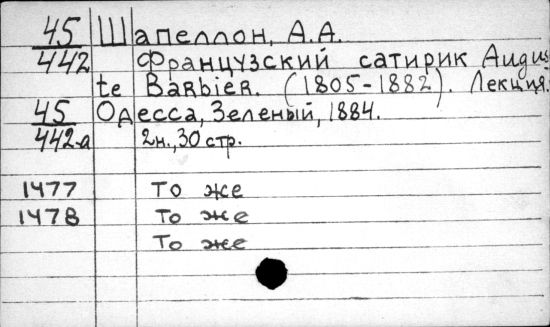 45 Шапеллон, А.А.
442 Французский сатирик Augus
te Barbier. (1805-1882). Лекция.
45 Одесса, Зеленый, 1884.
442-а 2н., 30 стр.
1477 То же
1478 То же
То же